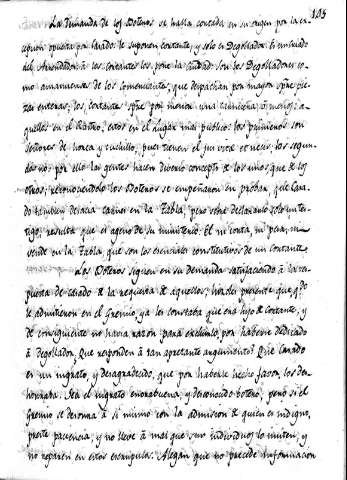 103
La demanda de los Botenos se halla contestada en su origen por la ex-
cepcion opuesta por Canado le suponen cortante, y solo es Degollador.
del Arrendador à los cortantes los pone la Ciudad son los Degolladores co-
mo amanuenses de los comerciantes, que despachan por mayor
zas enteras, los cortantes por menor una tercia o menos; a-
quellos en el Rastro, estos en el Lugar mas publico: los primeros son
Señores de horca y cuchillo, pues tienen el jus vitæ et necis, los segun-
dos no; por ello las gentes hacen diverso concepto de los unos que de los
otros; reconociendolo los Botenos se empeñaron en probar, que Cana-
do tambien pesava carnes en la Tabla, pero sobre declararlo solo un tes-
tigo, resulta que es ageno de su ministerio. El ni corta, ni pesa, ni
vende en la Tabla, que son los esenciales constitutivos de un cortante
Los Botenos siguen en su demanda satisfaciendo à la res-
puesta de Canado à la requesta de aquellos; hacen presente que
le admitieron en el Gremio, ya les constaba que era hijo de Cortante, y
de consiguiente no havia razon para excluirlo, por haverse dedicado
à degollador. Que responden à tan apretante argumento? Que Canado
es un ingrato y desagradecido, que por haberse hecho favor, los des-
honrava. Sea el ingrato enorabuena, y desconocido boteno, pero si el
Gremio se deronra à si mismo con la admision de quien es indigno,
preste paciencia, y no lleve à mal que sus individuos lo noten, y
no reparen en estos escrupulos. Alegan que no precede informacion